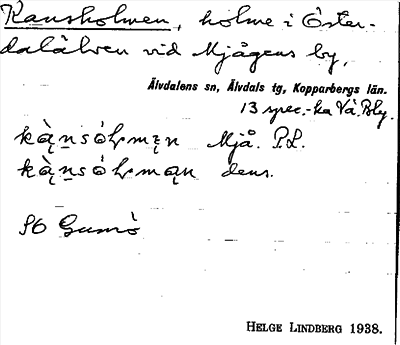 Kansholmen, holme i Öster-
dalälven vid Mjågens by,
Älvdalens sn, Älvdals tg, Kopparbergs län.
13 spec.-ka Vå. Bly.
Mjå. P.L.
dens.
SO Gumö
HELGE LINDBERG 1938.